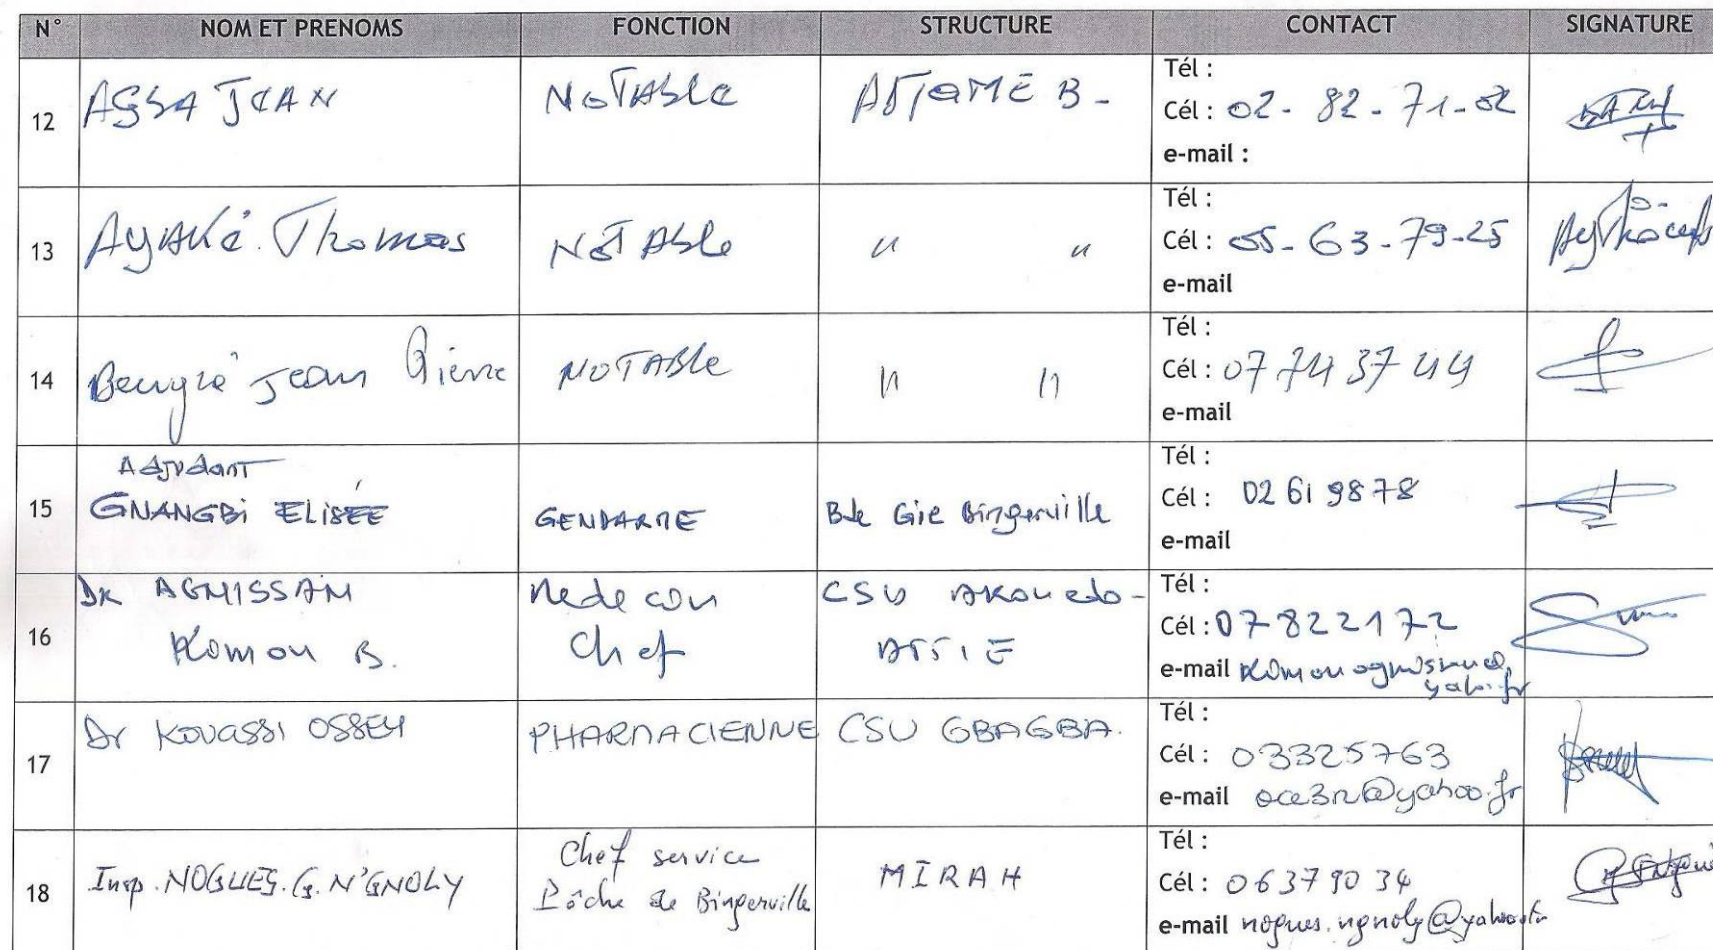 N° NOM ET PRENOMS FONCTION STRUCTURE CONTACT SIGNATURE
12 AGBA JEAN NOTABLE ADJAME B- Tél :
Cél : 02-82-71-02
e-mail :
13 AYAKé Thomas NOTABLE " " Tél :
Cél : 05-63-79-25
e-mail
14 Beugré Jean Pierre NOTABLE " " Tél :
Cél : 07 74 37 44
e-mail
15 Adjudant
GNANGBi ELISÉE GENDARME Bde Gie Bingerville Tél :
Cél : 02 61 98 78
e-mail
16 Dr AGNISSAN
Komon B. Medecin
Chef CSU AKouedo-
ATTIE Tél :
Cél : 07 82 21 72
e-mail
17 Dr KOUASSI OSSEY PHARMACIENNE CSU GBAGBA. Tél :
Cél : 03325763
e-mail oce3n@yahoo.fr
18 Insp. NOGUES. G. N'GNOLY Chef service
Pêche de Bingerville MIRAH Tél :
Cél : 06 37 90 34
e-mail nogues.ngnoly@yahoo.fr